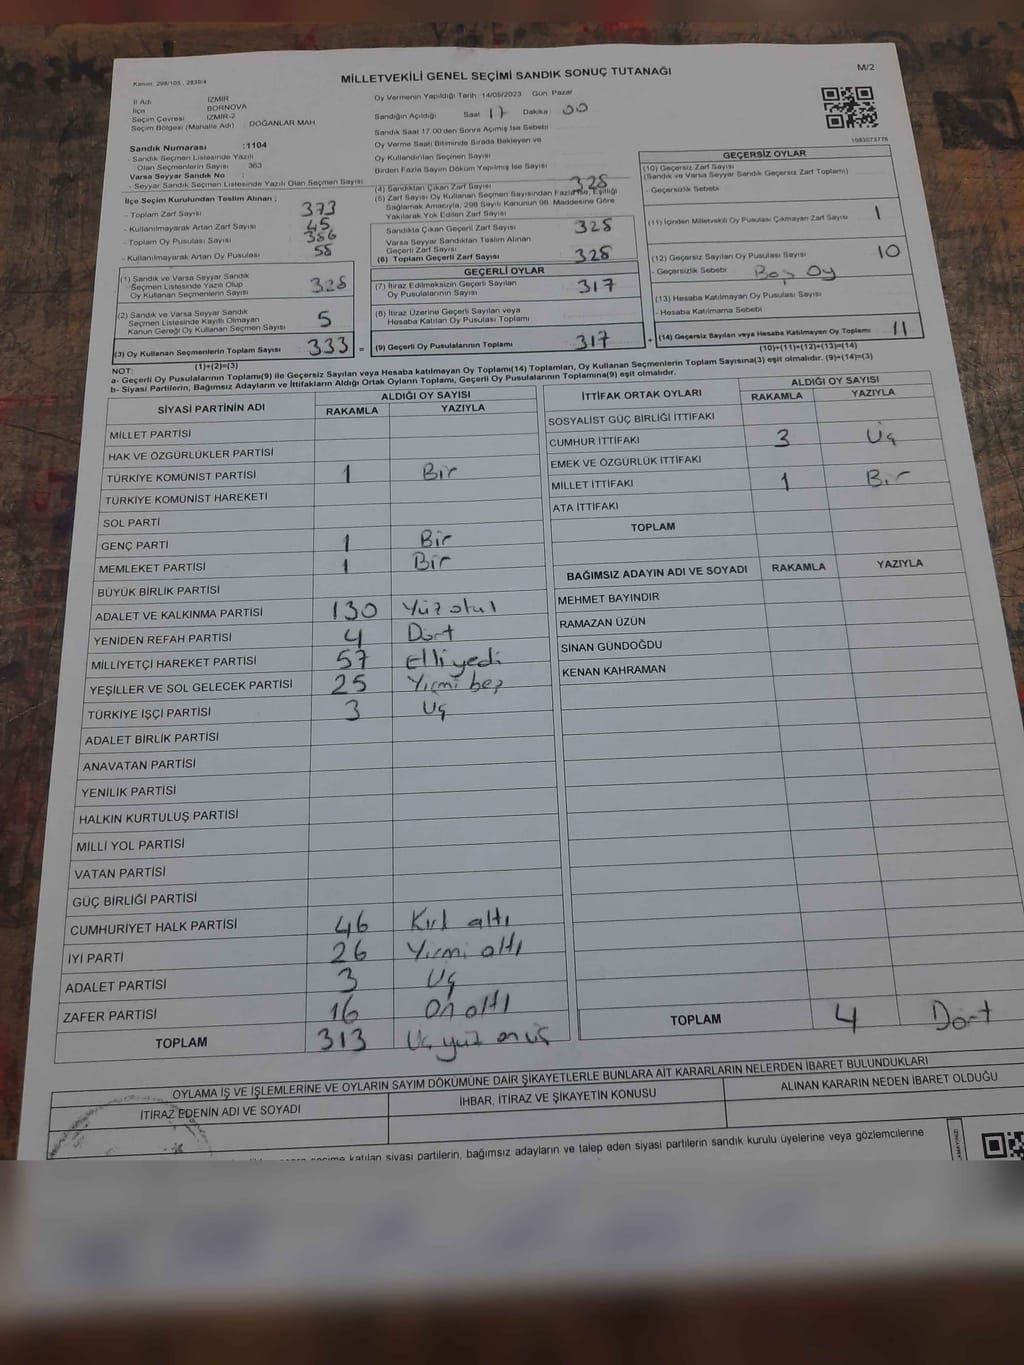 Kanun: 298/105, 2839/4
MİLLETVEKİLİ GENEL SEÇİMİ SANDIK SONUÇ TUTANAĞI
M/2
İl Adı İZMİR
İlçe BORNOVA
Seçim Çevresi İZMİR-2
Seçim Bölgesi (Mahalle Adı) : DOĞANLAR MAH.
Sandık Numarası :1104
- Sandık Seçmen Listesinde Yazılı
Olan Seçmenlerin Sayısı 363
Varsa Seyyar Sandık No :
- Seyyar Sandık Seçmen Listesinde Yazılı Olan Seçmen Sayısı
İlçe Seçim Kurulundan Teslim Alınan ;
- Toplam Zarf Sayısı 373
- Kullanılmayarak Artan Zarf Sayısı 45
- Toplam Oy Pusulası Sayısı 386
- Kullanılmayarak Artan Oy Pusulası 58
(1) Sandık ve Varsa Seyyar Sandık
Seçmen Listesinde Yazılı Olup
Oy Kullanan Seçmenlerin Sayısı 328
(2) Sandık ve Varsa Seyyar Sandık
Seçmen Listesinde Kayıtlı Olmayan
Kanun Gereği Oy Kullanan Seçmen Sayısı 5
(3) Oy Kullanan Seçmenlerin Toplam Sayısı 333
(1)+(2)=(3)
Oy Vermenin Yapıldığı Tarih 14/05/2023 Gün: Pazar
Sandığın Açıldığı Saat 17 Dakika 00
Sandık Saat 17.00'den Sonra Açılmış İse Sebebi
Oy Verme Saati Bitiminde Sırada Bekleyen ve
Oy Kullandırılan Seçmen Sayısı
Birden Fazla Sayım Döküm Yapılmış İse Sayısı
(4) Sandıktan Çıkan Zarf Sayısı 328
(5) Zarf Sayısı Oy Kullanan Seçmen Sayısından Fazla İse, Eşitliği
Sağlamak Amacıyla, 298 Sayılı Kanunun 98. Maddesine Göre
Yakılarak Yok Edilen Zarf Sayısı
Sandıkta Çıkan Geçerli Zarf Sayısı 328
Varsa Seyyar Sandıktan Teslim Alınan
Geçerli Zarf Sayısı
(6) Toplam Geçerli Zarf Sayısı 328
GEÇERLİ OYLAR
(7) İtiraz Edilmeksizin Geçerli Sayılan
Oy Pusulalarının Sayısı 317
(8) İtiraz Üzerine Geçerli Sayılan veya
Hesaba Katılan Oy Pusulası Toplamı
= (9) Geçerli Oy Pusulalarının Toplamı 317
1083573776
GEÇERSİZ OYLAR
(10) Geçersiz Zarf Sayısı
(Sandık ve Varsa Seyyar Sandık Geçersiz Zarf Toplamı)
- Geçersizlik Sebebi
(11) İçinden Milletvekili Oy Pusulası Çıkmayan Zarf Sayısı 1
(12) Geçersiz Sayılan Oy Pusulası Sayısı 10
- Geçersizlik Sebebi Boş Oy
(13) Hesaba Katılmayan Oy Pusulası Sayısı
- Hesaba Katılmama Sebebi
+ (14) Geçersiz Sayılan veya Hesaba Katılmayan Oy Toplamı 11
(10)+(11)+(12)+(13)=(14)
NOT:
a- Geçerli Oy Pusulaları Toplamı(9) ile Geçersiz Sayılan veya Hesaba katılmayan Oy Toplamı(14) Toplamları, Oy Kullanan Seçmenlerin Toplam Sayısına(3) eşit olmalıdır. (9)+(14)=(3)
b- Siyasi Partilerin, Bağımsız Adayların ve İttifakların Aldığı Ortak Oyların Toplamı, Geçerli Oy Pusulalarının Toplamına(9) eşit olmalıdır.
SİYASİ PARTİNİN ADI ALDIĞI OY SAYISI
RAKAMLA YAZIYLA
MİLLET PARTİSİ
HAK VE ÖZGÜRLÜKLER PARTİSİ
TÜRKİYE KOMÜNİST PARTİSİ 1 Bir
TÜRKİYE KOMÜNİST HAREKETİ
SOL PARTİ
GENÇ PARTİ 1 Bir
MEMLEKET PARTİSİ 1 Bir
BÜYÜK BİRLİK PARTİSİ
ADALET VE KALKINMA PARTİSİ 130 Yüz otuz
YENİDEN REFAH PARTİSİ 4 Dört
MİLLİYETÇİ HAREKET PARTİSİ 57 Elli yedi
YEŞİLLER VE SOL GELECEK PARTİSİ 25 Yirmi beş
TÜRKİYE İŞÇİ PARTİSİ 3 Üç
ADALET BİRLİK PARTİSİ
ANAVATAN PARTİSİ
YENİLİK PARTİSİ
HALKIN KURTULUŞ PARTİSİ
MİLLİ YOL PARTİSİ
VATAN PARTİSİ
GÜÇ BİRLİĞİ PARTİSİ
CUMHURİYET HALK PARTİSİ 46 Kırk altı
İYİ PARTİ 26 Yirmi altı
ADALET PARTİSİ 3 Üç
ZAFER PARTİSİ 16 On altı
TOPLAM 313 Üç yüz on üç
İTTİFAK ORTAK OYLARI ALDIĞI OY SAYISI
RAKAMLA YAZIYLA
SOSYALİST GÜÇ BİRLİĞİ İTTİFAKI
CUMHUR İTTİFAKI 3 Üç
EMEK VE ÖZGÜRLÜK İTTİFAKI
MİLLET İTTİFAKI 1 Bir
ATA İTTİFAKI
TOPLAM
BAĞIMSIZ ADAYIN ADI VE SOYADI RAKAMLA YAZIYLA
MEHMET BAYINDIR
RAMAZAN ÜZÜN
SİNAN GÜNDOĞDU
KENAN KAHRAMAN
TOPLAM 4 Dört
OYLAMA İŞ VE İŞLEMLERİNE VE OYLARIN SAYIM DÖKÜMÜNE DAİR ŞİKAYETLERLE BUNLARA AİT KARARLARIN NELERDEN İBARET BULUNDUKLARI
İTİRAZ EDENİN ADI VE SOYADI İHBAR, İTİRAZ VE ŞİKAYETİN KONUSU ALINAN KARARIN NEDEN İBARET OLDUĞU
seçime katılan siyasi partilerin, bağımsız adayların ve talep eden siyasi partilerin sandık kurulu üyelerine veya gözlemcilerine